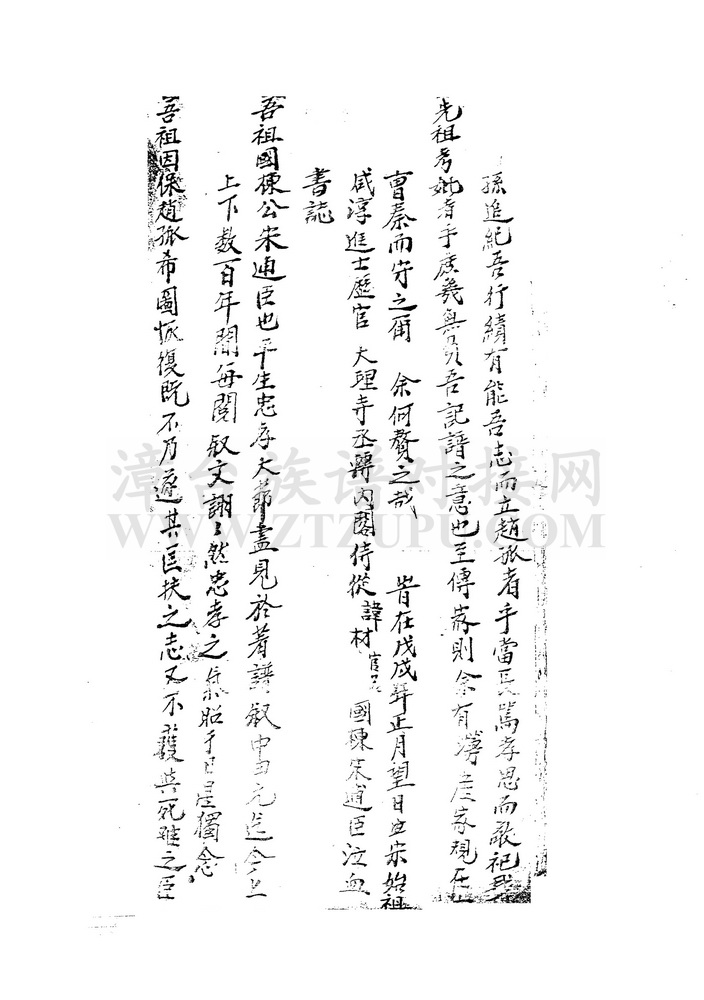 孫追紀吾行績有能吾志而立趙孤者乎當長篤孝思而敬祀我
先祖考妣者乎庶幾無負吾記譜之意也至傳家則余有薄產家規在
曹秦而守之爾 余何贅之哉 時在戊戌年正月望日立宋始祖
咸淳進士歷官 大理寺丞轉內閣侍從 諱材 官名 國棟宋逋臣泣血
書誌
吾祖國棟公宋逋臣也平生忠孝大節盡見於著譜敍中由元迄今上
上下数百年間每閱敍文詡々然忠孝之氣昭于日星獨念
吾祖因保趙孤希圖恢復既不乃遂其匡扶之志又不獲與死难之臣
漳台族谱对接网
WWW.ZTZUPU.COM